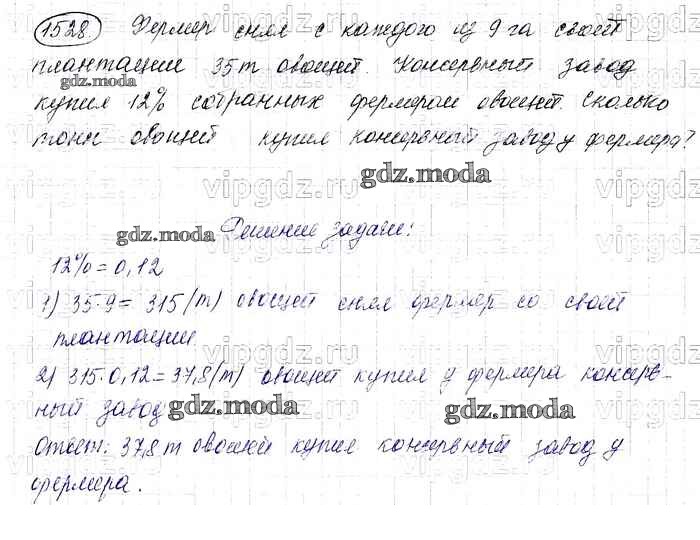 1528. Фермер снял с каждого из 9 га своей
плантации 35 т овощей. Консервный завод
купил 12% собранных фермером овощей. Сколько
тонн овощей купил консервный завод у фермера?
Решение задачи:
12% = 0,12
1) 35·9 = 315 (т) овощей снял фермер со своей
плантации
2) 315·0,12 = 37,8 (т) овощей купил у фермера консерв-
ный завод
Ответ: 37,8 т овощей купил консервный завод у
фермера.
gdz.moda
gdz.moda
gdz.moda
gdz.moda
gdz.moda
vipgdz.ru